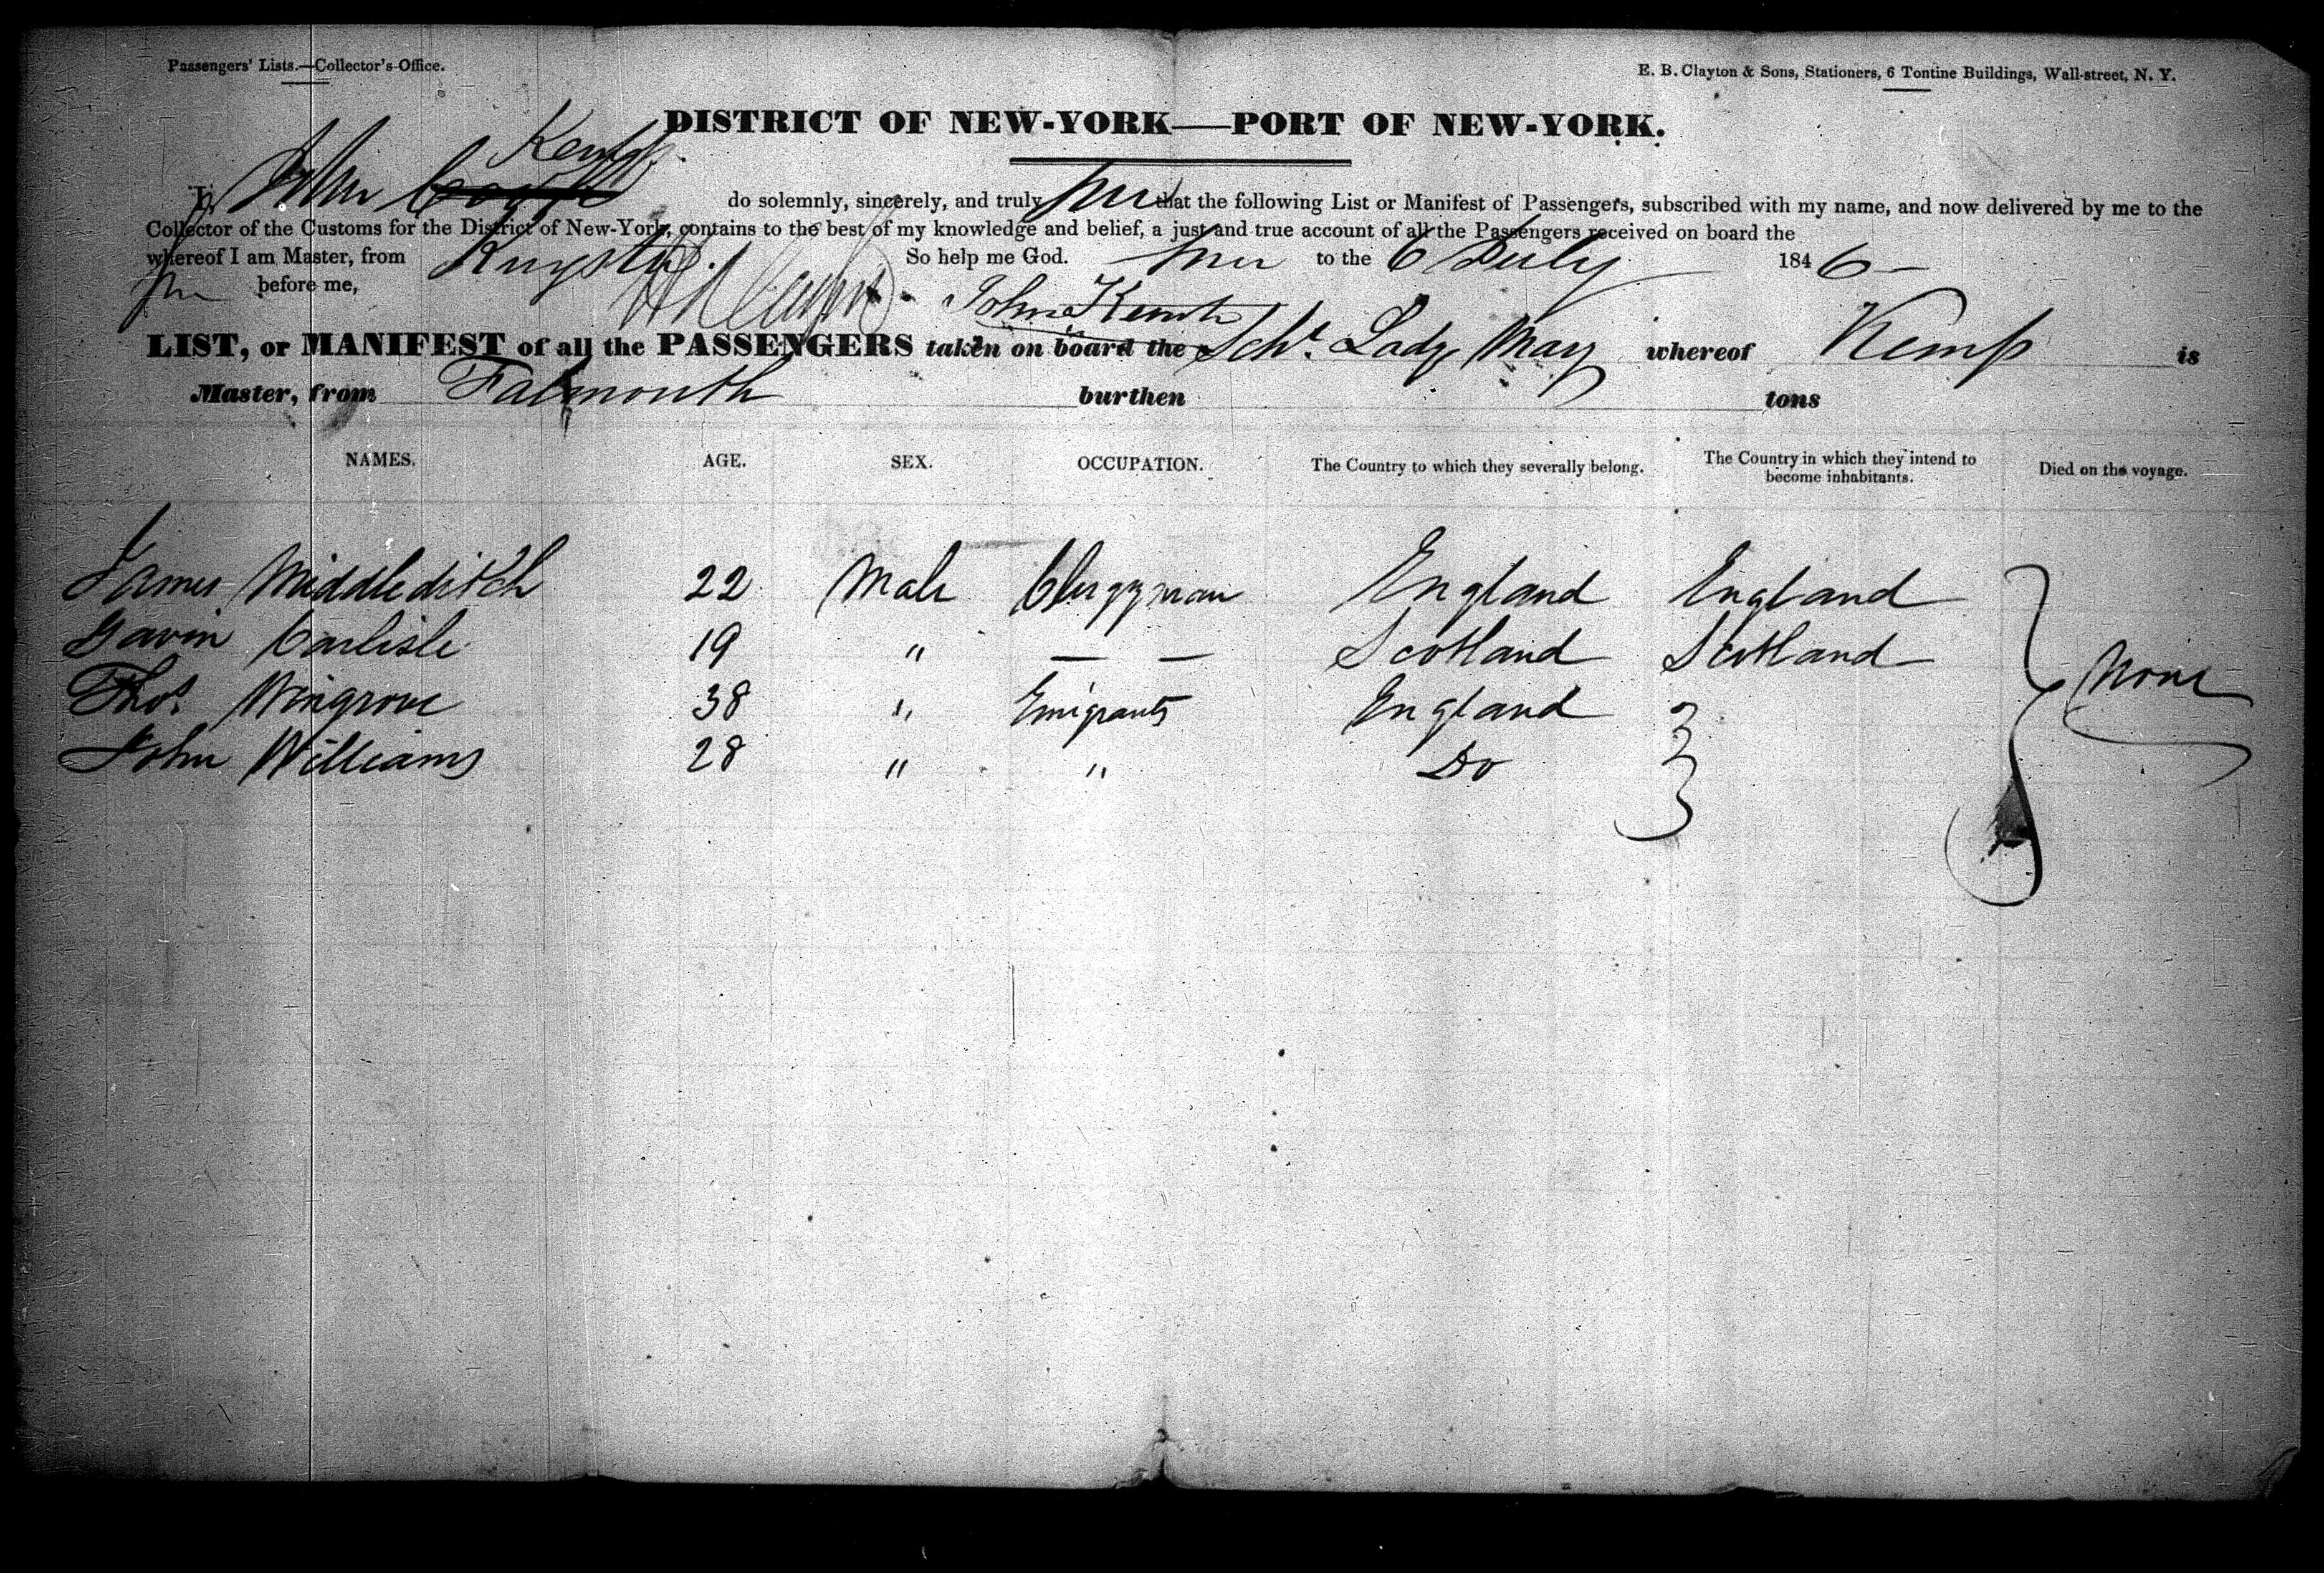 Passengers' Lists.—Collector's Office.
E. B. Clayton & Sons, Stationers, 6 Tontine Buildings, Wall-street, N. Y.
DISTRICT OF NEW-YORK—PORT OF NEW-YORK.
Kemp
I, John do solemnly, sincerely, and truly that the following List or Manifest of Passengers, subscribed with my name, and now delivered by me to the
Collector of the Customs for the District of New-York, contains to the best of my knowledge and belief, a just and true account of all the Passengers received on board the
whereof I am Master, from So help me God. to the 6 July 1846
before me, John Kemp
LIST, or MANIFEST of all the PASSENGERS taken on board the Schr. Lady Mary whereof Kemp is
Master, from Falmouth burthen tons
NAMES. AGE. SEX. OCCUPATION. The Country to which they severally belong. The Country in which they intend to become inhabitants. Died on the voyage.
James Middleditch 22 Male Clergyman England England
Gavin Carlisle 19 " — — Scotland Scotland
Thos. Wingrove 38 " Emigrants England
None
John Williams 28 " " Do